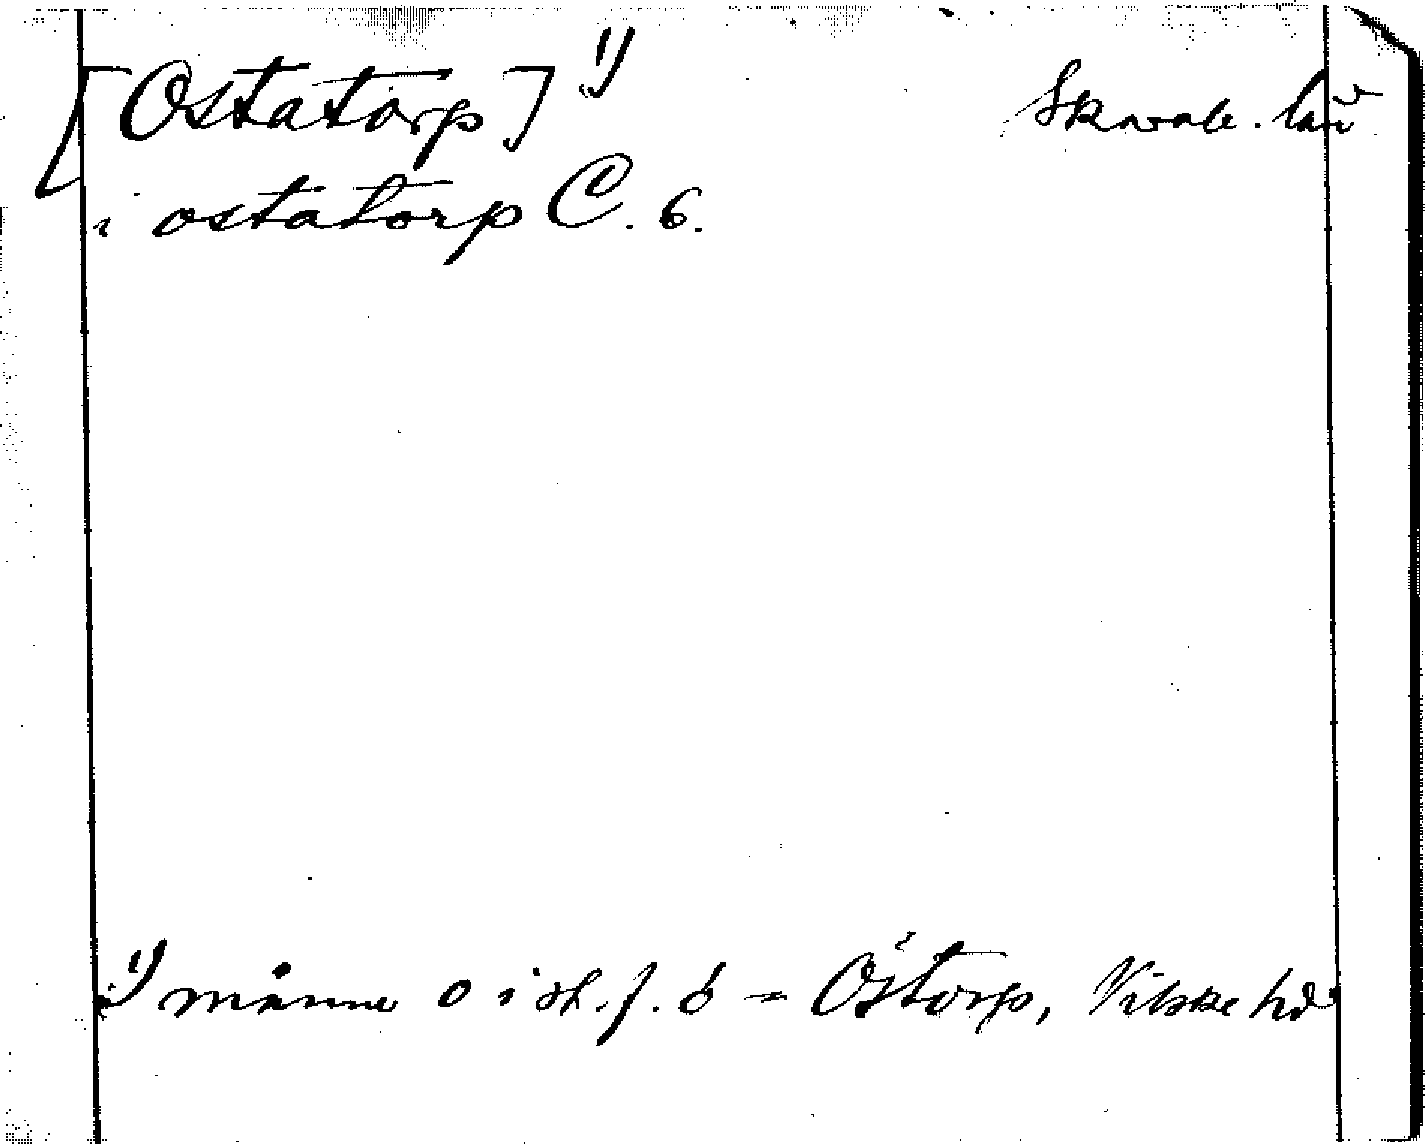 [Ostatorp] 1) Skarab. län
i ostatorp C. 6.
1) månne o i st. f. ö = Östorp, Vilske hd